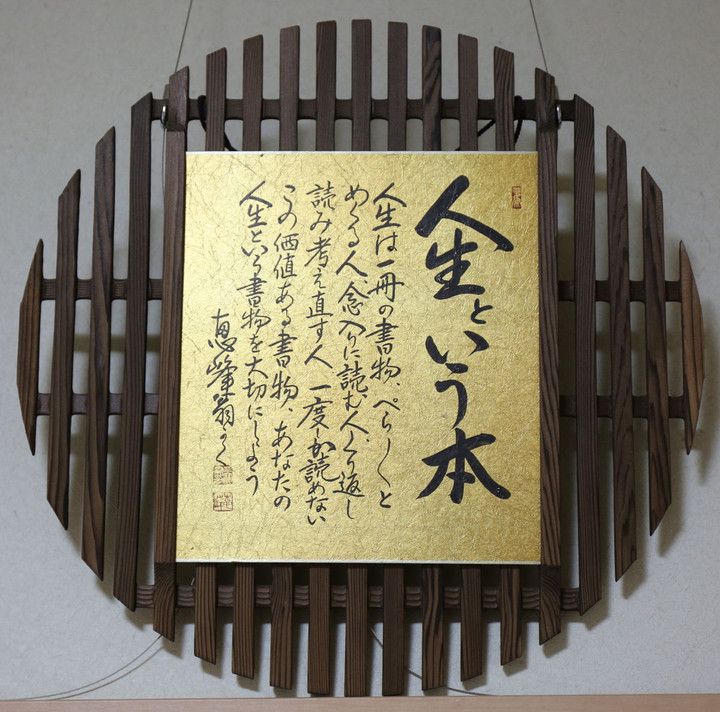 人生という本
人生は一冊の書物、ぺらぺらと
めくる人、念入りに読む人、くり返し
読み考え直す人 一度しか読めない
この価値ある書物、あなたの
人生という書物を大切にしよう
恵峰